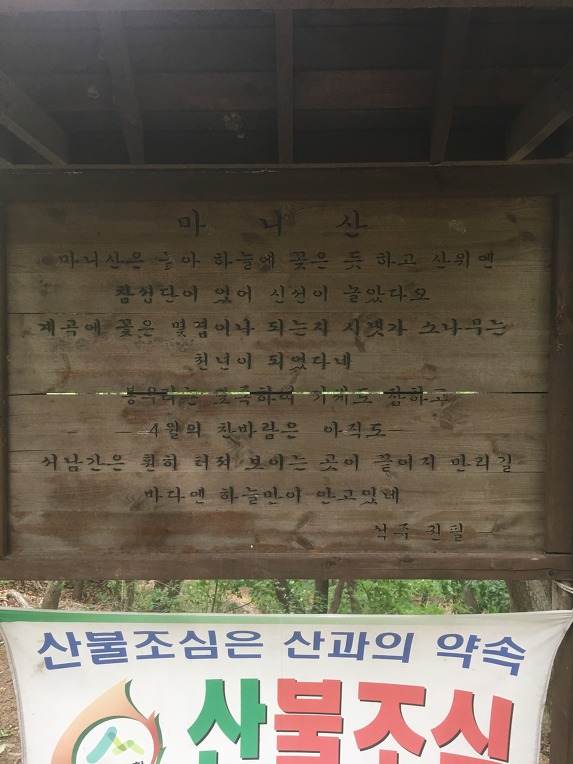 마 니 산
마니산은 높아 하늘에 꽂은 듯 하고 산위엔
참성단이 있어 신선이 놀았다오
계곡에 꽃은 몇겹이나 되는지 시냇가 소나무는
천년이 되었다네
봉우리는 하고
4월의 찬바람은 아직도
서남간은 훤히 터져 보이는 곳이 끝이지 만리길
바다엔 하늘만이 안고있네
석주 권필
산불조심은 산과의 약속
산불조심